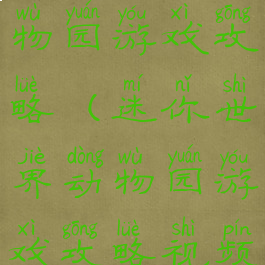 wù yuán yóu xì gōng
物园游戏攻
lüè mí nǐ shì
略(迷你世
jiè dòng wù yuán yóu
界动物园游
xì gōng lüè shì pín
戏攻略视频